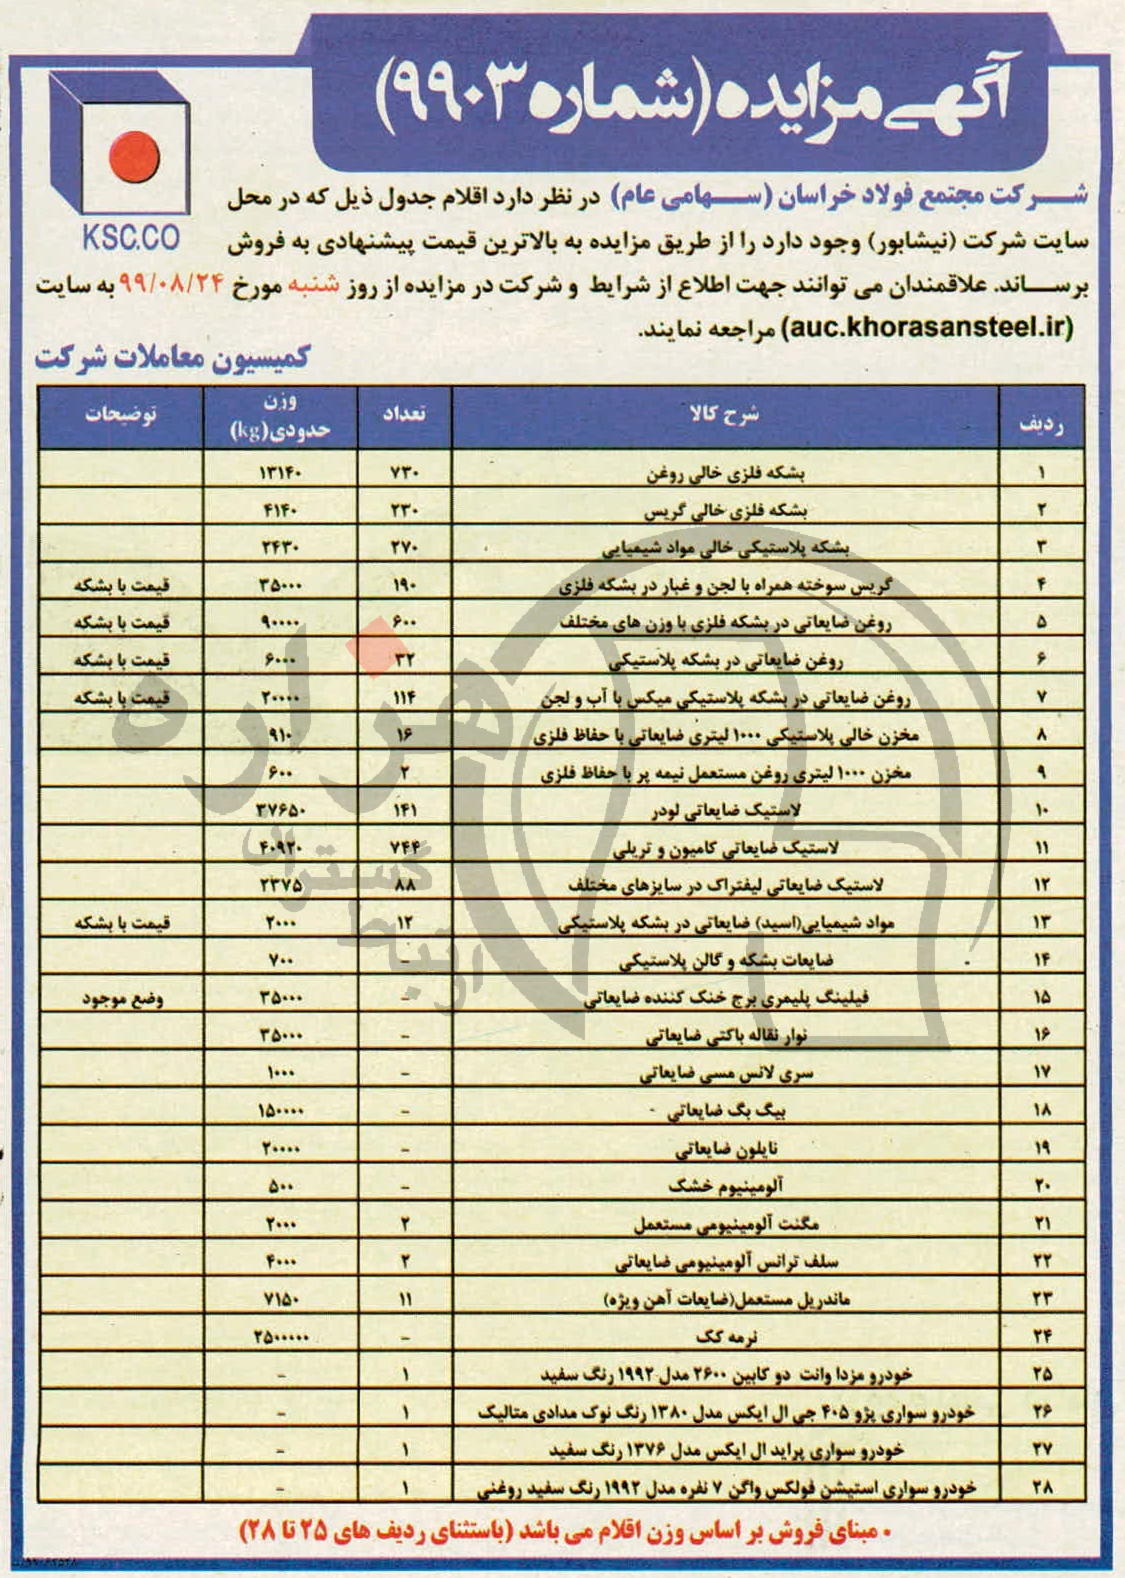 آگهی مزایده (شماره ۹۹۰۳)
KSC.CO
شرکت مجتمع فولاد خراسان (سهامی عام) در نظر دارد اقلام جدول ذیل که در محل
سایت شرکت (نیشابور) وجود دارد را از طریق مزایده به بالاترین قیمت پیشنهادی به فروش
برساند. علاقمندان می توانند جهت اطلاع از شرایط و شرکت در مزایده از روز شنبه مورخ ۹۹/۰۸/۲۴ به سایت
(auc.khorasansteel.ir) مراجعه نمایند.
کمیسیون معاملات شرکت
ردیف شرح کالا تعداد وزن حدودی(kg) توضیحات
۱ بشکه فلزی خالی روغن ۷۳۰ ۱۳۱۴۰
۲ بشکه فلزی خالی گریس ۲۳۰ ۴۱۴۰
۳ بشکه پلاستیکی خالی مواد شیمیایی ۲۷۰ ۲۴۳۰
۴ گریس سوخته همراه با لجن و غبار در بشکه فلزی ۱۹۰ ۳۵۰۰۰ قیمت با بشکه
۵ روغن ضایعاتی در بشکه فلزی با وزن های مختلف ۶۰۰ ۹۰۰۰۰ قیمت با بشکه
۶ روغن ضایعاتی در بشکه پلاستیکی ۳۲ ۶۰۰۰ قیمت با بشکه
۷ روغن ضایعاتی در بشکه پلاستیکی میکس با آب و لجن ۱۱۴ ۲۰۰۰۰ قیمت با بشکه
۸ مخزن خالی پلاستیکی ۱۰۰۰ لیتری ضایعاتی با حفاظ فلزی ۱۶ ۹۱۰
۹ مخزن ۱۰۰۰ لیتری روغن مستعمل نیمه پر با حفاظ فلزی ۲ ۶۰۰
۱۰ لاستیک ضایعاتی لودر ۱۴۱ ۳۷۶۵۰
۱۱ لاستیک ضایعاتی کامیون و تریلی ۷۴۴ ۴۰۹۲۰
۱۲ لاستیک ضایعاتی لیفتراک در سایزهای مختلف ۸۸ ۲۳۷۵
۱۳ مواد شیمیایی(اسید) ضایعاتی در بشکه پلاستیکی ۱۲ ۲۰۰۰ قیمت با بشکه
۱۴ ضایعات بشکه و گالن پلاستیکی - ۷۰۰
۱۵ فیلینگ پلیمری برج خنک کننده ضایعاتی - ۳۵۰۰۰ وضع موجود
۱۶ نوار نقاله باکتی ضایعاتی - ۳۵۰۰۰
۱۷ سری لانس مسی ضایعاتی - ۱۰۰۰
۱۸ بیگ بگ ضایعاتی - ۱۵۰۰۰۰
۱۹ نایلون ضایعاتی - ۲۰۰۰۰
۲۰ آلومینیوم خشک - ۵۰۰
۲۱ مگنت آلومینیومی مستعمل ۲ ۲۰۰۰
۲۲ سلف ترانس آلومینیومی ضایعاتی ۲ ۴۰۰۰
۲۳ ماندریل مستعمل(ضایعات آهن ویژه) ۱۱ ۷۱۵۰
۲۴ نرمه کک - ۲۵۰۰۰۰۰
۲۵ خودرو مزدا وانت دو کابین ۲۶۰۰ مدل ۱۹۹۲ رنگ سفید ۱ -
۲۶ خودرو سواری پژو ۴۰۵ جی ال ایکس مدل ۱۳۸۰ رنگ نوک مدادی متالیک ۱ -
۲۷ خودرو سواری پراید ال ایکس مدل ۱۳۷۶ رنگ سفید ۱ -
۲۸ خودرو سواری استیشن فولکس واگن ۷ نفره مدل ۱۹۹۲ رنگ سفید روغنی ۱ -
• مبنای فروش بر اساس وزن اقلام می باشد (باستثنای ردیف های ۲۵ تا ۲۸)
هزاره
گسترای
ارتباط